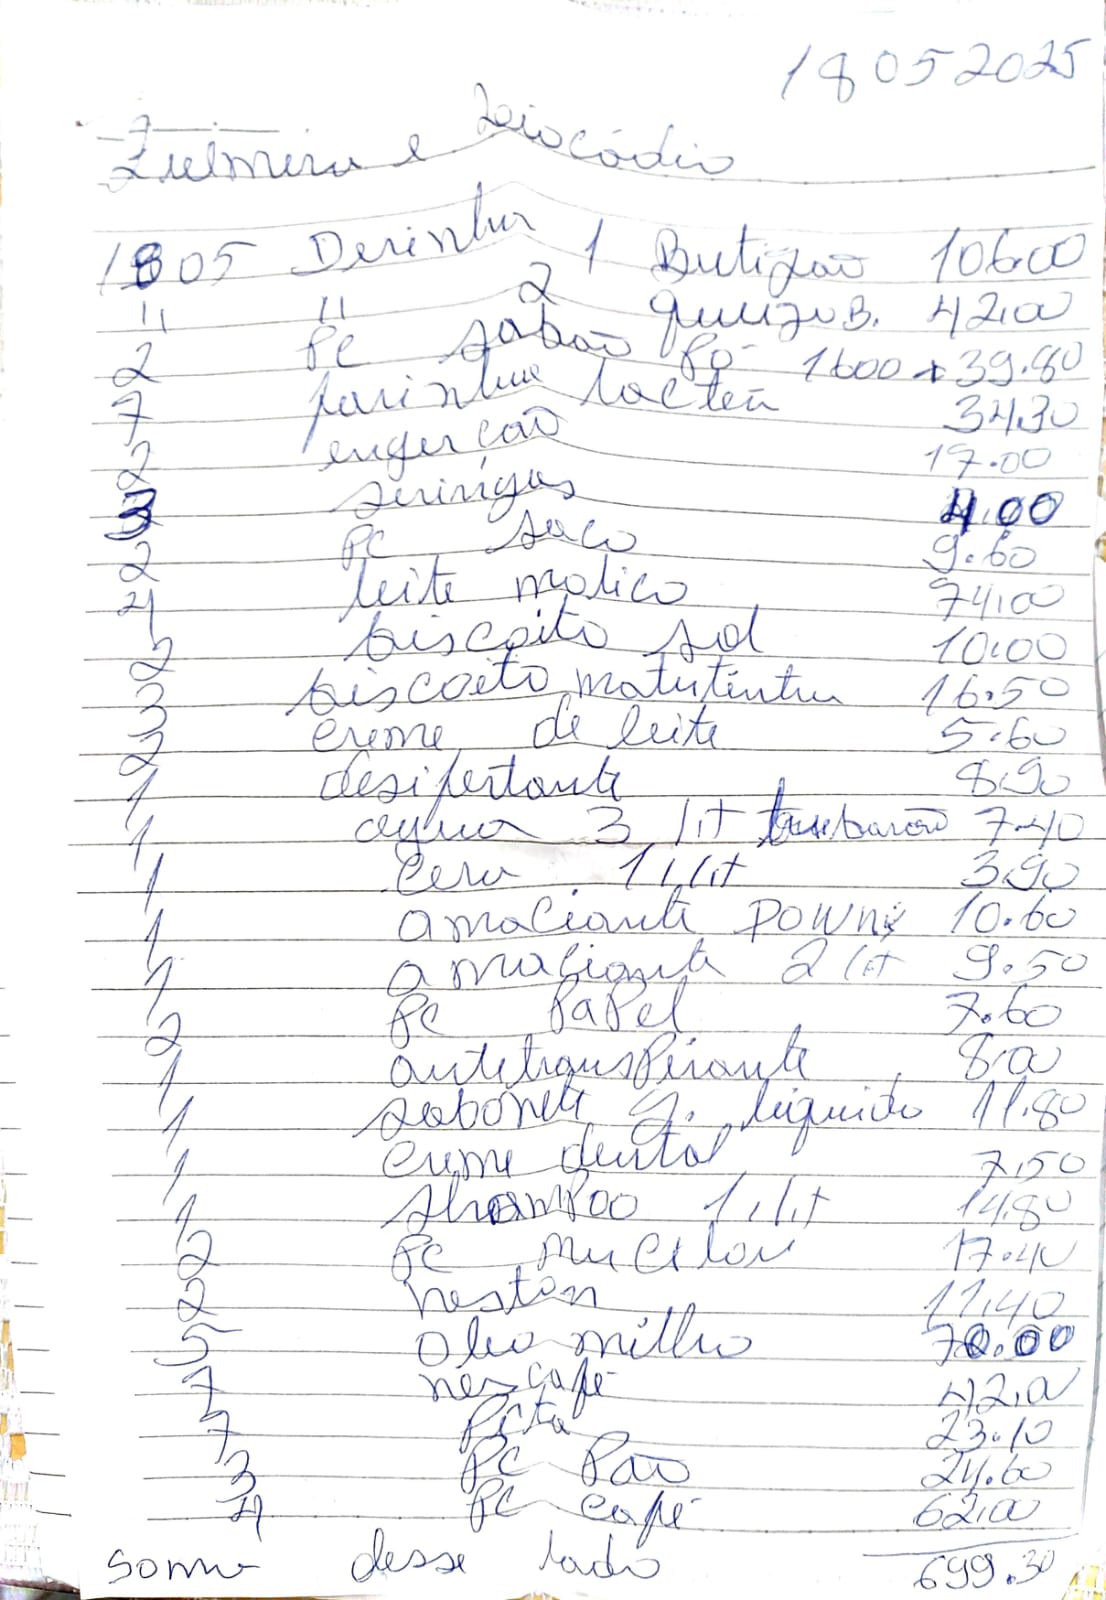 18 05 2025
Zulmira e Leocádio
18 05 Derinha 1 Butijão 106.00
" " 2 queijo B. 42,00
2 PC sabão Pó 1600 x 39.80
7 farinha lactea 34.30
2 engeção 17.00
3 seringas 4.00
2 PC saco 9.60
4 leite molico 74,00
2 biscoito sol 10.00
3 biscoito matutintin 16.50
2 creme de leite 5.60
1 desifertante 8.90
1 agua 3 lit tubarão 7.40
1 Cera 1 lit 3.90
1 amaciante DOWNY 10.60
1 amaciante 2 lit 9.50
2 PC PaPel 7.60
1 antetransPirante 8.00
1 sabonete g. liquido 11.80
1 creme dental 7.50
1 shamPoo 1 lit 14.80
2 PC mucilon 17.40
2 neston 11.40
5 oleo milho 70.00
7 nescafé 42,00
7 Pcta 23.10
3 PC Pão 24.60
4 PC café 62.00
soma desse lado 699.30